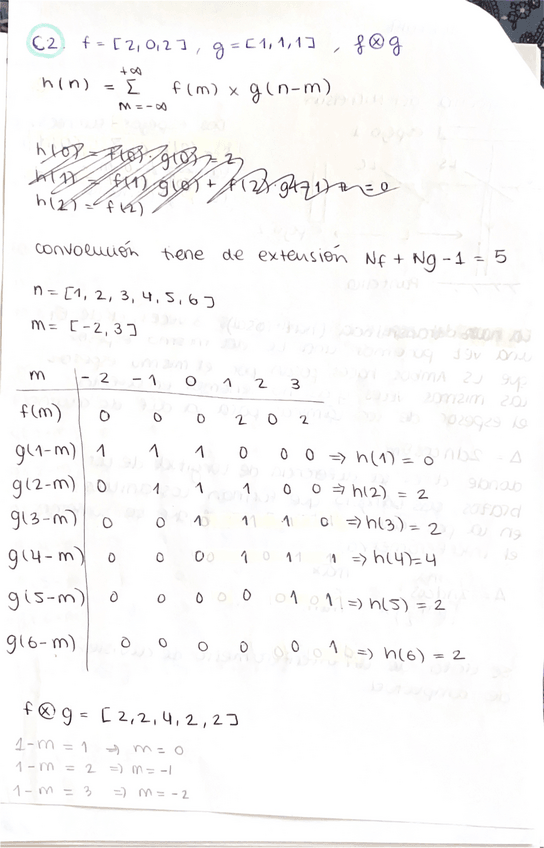 C2. f = [2,0,2], g = [1,1,1], f⊗g
h(n) = Σ f(m) × g(n-m)
+∞
m=-∞
h(0) = f(0)·g(0) = 2
h(1) = f(1) g(0) + f(2)·g(-1) = 0
h(2) = f(2)
convolución tiene de extensión Nf + Ng - 1 = 5
n = [1, 2, 3, 4, 5, 6]
m = [-2, 3]
m -2 -1 0 1 2 3
f(m) 0 0 0 2 0 2
g(1-m) 1 1 1 0 0 0 => h(1) = 0
g(2-m) 0 1 1 1 0 0 => h(2) = 2
g(3-m) 0 0 1 1 1 0 => h(3) = 2
g(4-m) 0 0 0 1 1 1 => h(4)=4
g(5-m) 0 0 0 0 1 1 => h(5) = 2
g(6-m) 0 0 0 0 0 1 => h(6) = 2
f⊗g = [2,2,4,2,2]
1-m = 1 => m = 0
1-m = 2 => m = -1
1-m = 3 => m = -2